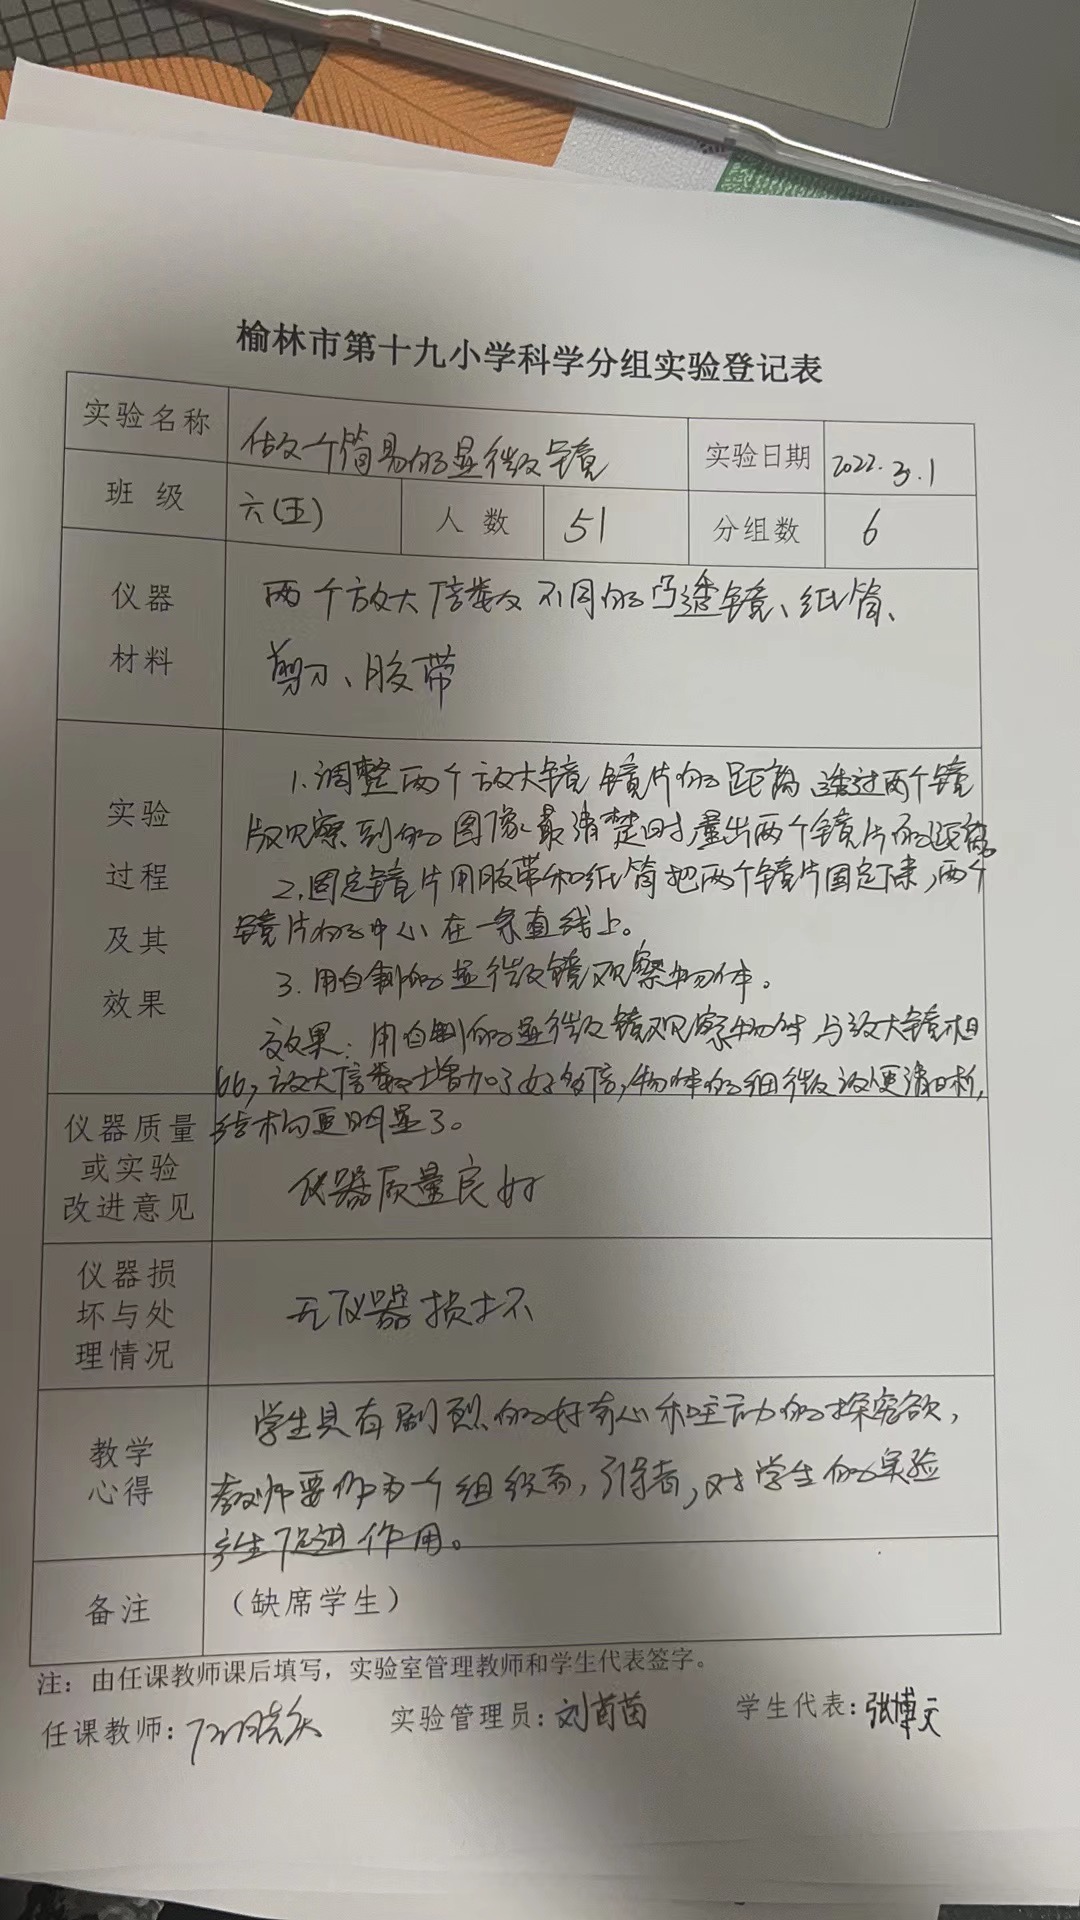 榆林市第十九小学科学分组实验登记表
实验名称 做个简易的显微镜 实验日期 2022.3.1
班级 六(五) 人数 51 分组数 6
仪器 两个放大倍数不同的凸透镜、纸筒、
材料 剪刀、胶带
1.调整两个放大镜镜片的距离,透过两个镜
实验 片观察到的图像最清楚时,量出两个镜片的距离。
过程 2.固定镜片用胶带和纸筒把两个镜片固定下来,两个
及其 镜片的中心在一条直线上。
效果 3.用自制的显微镜观察物体。
效果:用自制的显微镜观察物体与放大镜相
比,放大倍数增加了好多倍,物体的细微处更清晰,
仪器质量 结构更明显了。
或实验
改进意见 仪器质量良好
仪器损
坏与处 无仪器损坏
理情况
学生具有剧烈的好奇心和主动的探究欲,
教学
心得 教师要作为一个组织者,引导者,对学生的实验
产生促进作用。
备注 (缺席学生)
注:由任课教师课后填写,实验室管理教师和学生代表签字。
任课教师: 实验管理员:刘茵 学生代表:张博文